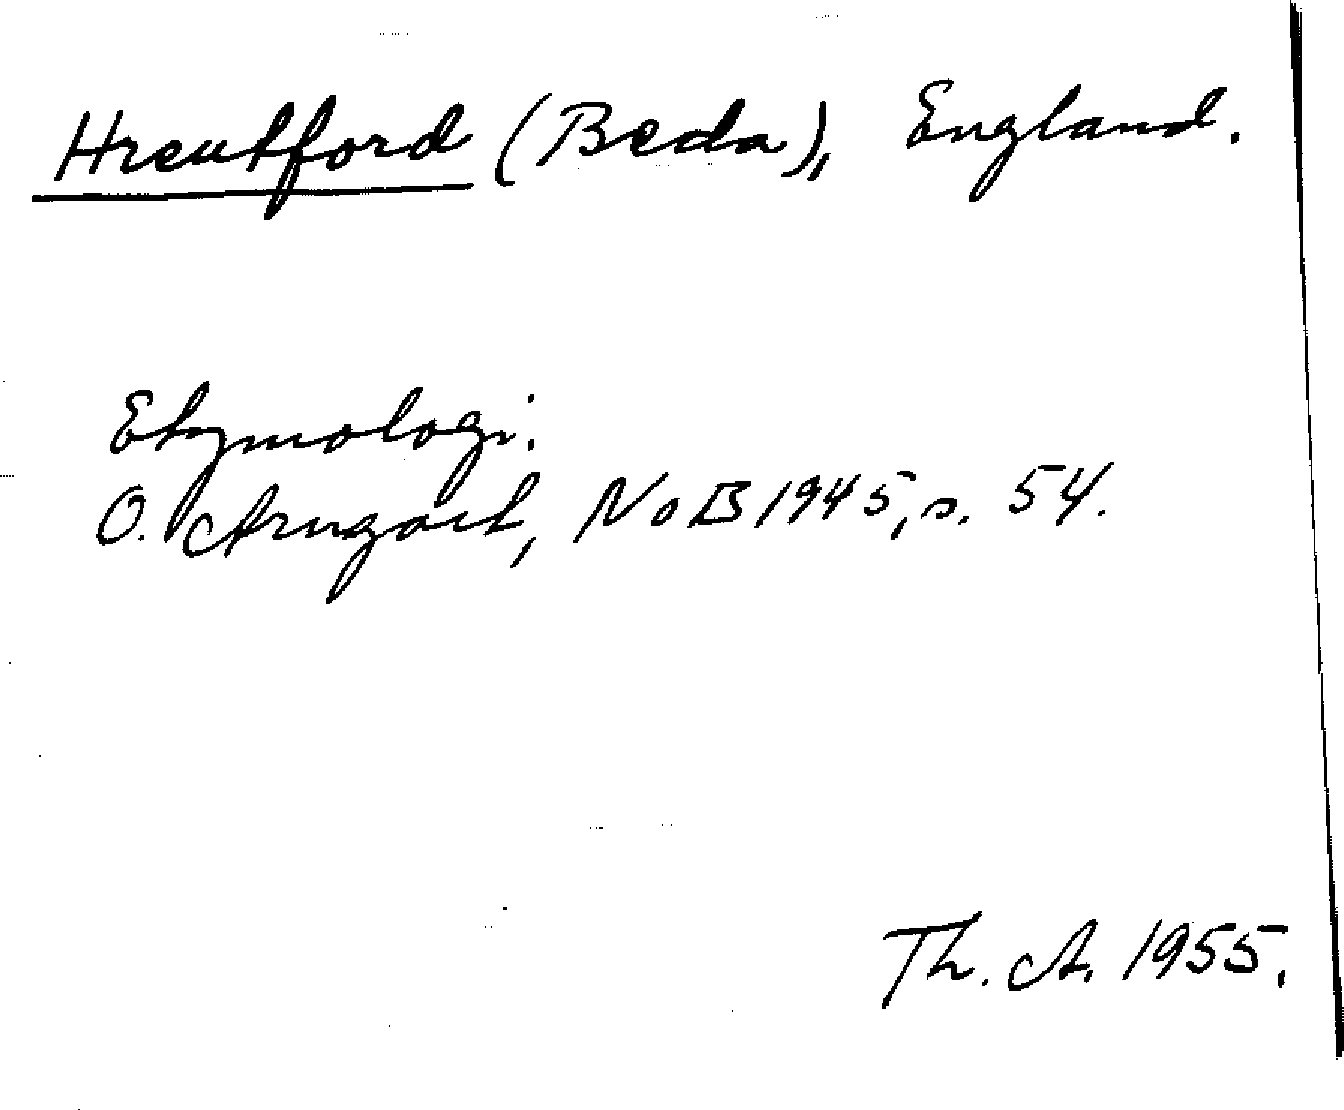 Hreutford (Beda), England.
Etymologi:
O. Arngart, NoB 1945, s. 54.
Th. A. 1955.